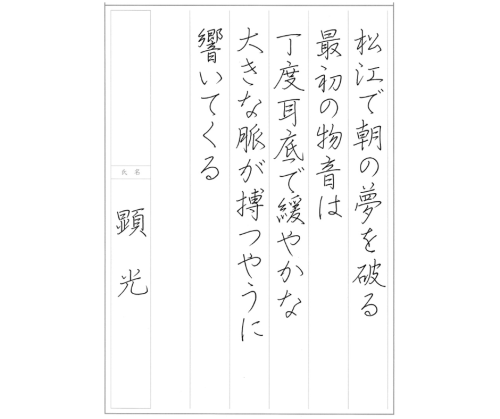 松江で朝の夢を破る
最初の物音は
丁度耳底で緩やかな
大きな脈が搏つやうに
響いてくる
氏名
顕光